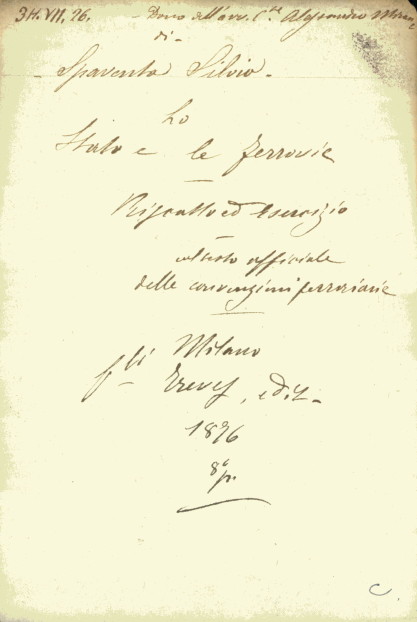 3H.VII,76. - Dono dell'avv. C.te Alessandro
di -
Spaventa Silvio -
Lo
Stato e le ferrovie
Riscatto ed esercizio
col testo officiale
delle convenzioni ferroviarie
Milano
f.lli Treves, edit -
1876
8° p.
C.